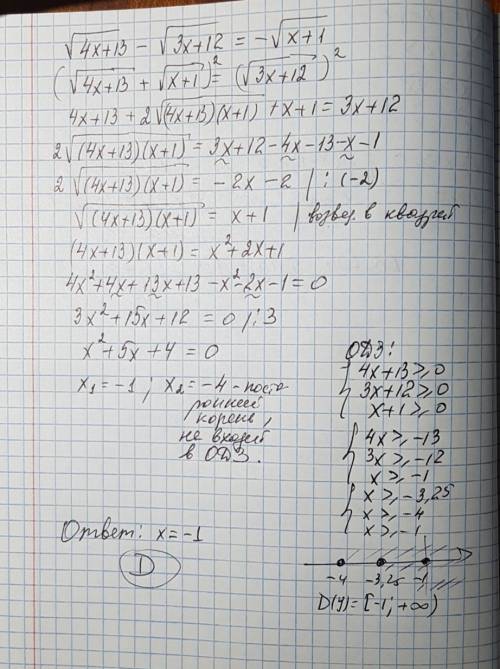 √4x+13 - √3x+12 = -√x+1
(√4x+13 + √x+1)² = (√3x+12)²
4x+13+2√(4x+13)(x+1) + x+1 = 3x+12
2√(4x+13)(x+1) = 3x+12-4x-13-x-1
2√(4x+13)(x+1) = -2x-2 | : (-2)
√(4x+13)(x+1) = x+1 | возвед. в квадрат
(4x+13)(x+1) = x²+2x+1
4x²+4x+13x+13-x²-2x-1=0
3x²+15x+12 = 0 /:3
x²+5x+4 = 0
x₁=-1; x₂=-4 - посто-
ронний
корень,
не входит
в ОДЗ.
Ответ: x=-1
D
ОДЗ:
{ 4x+13≥0
3x+12≥0
x+1≥0
{ 4x≥-13
3x≥-12
x≥-1
{ x≥-3,25
x≥-4
x≥-1
-4 -3,25 -1
D(y)=[-1; +∞)